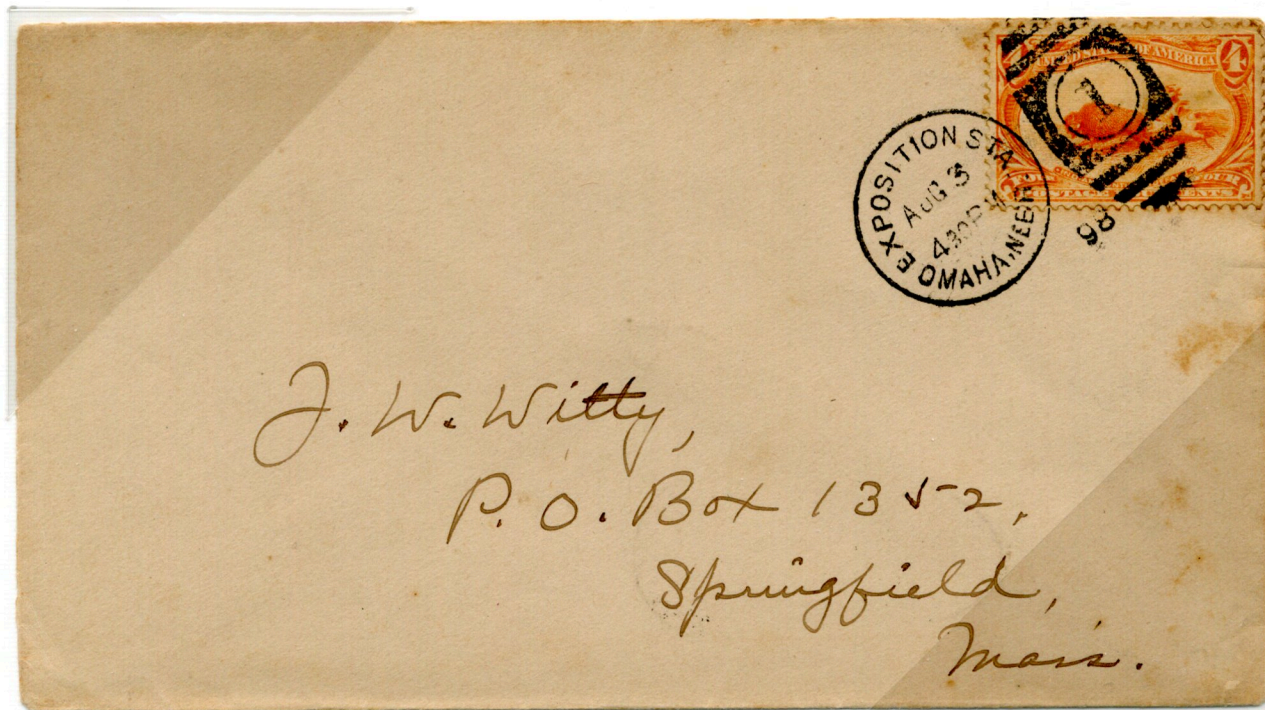 4 UNITED STATES OF AMERICA 4
1
EXPOSITION STA.
AUG 3
4 30 P M
OMAHA, NEBR.
98
J. W. Witty,
P. O. Box 1352,
Springfield,
Mass.